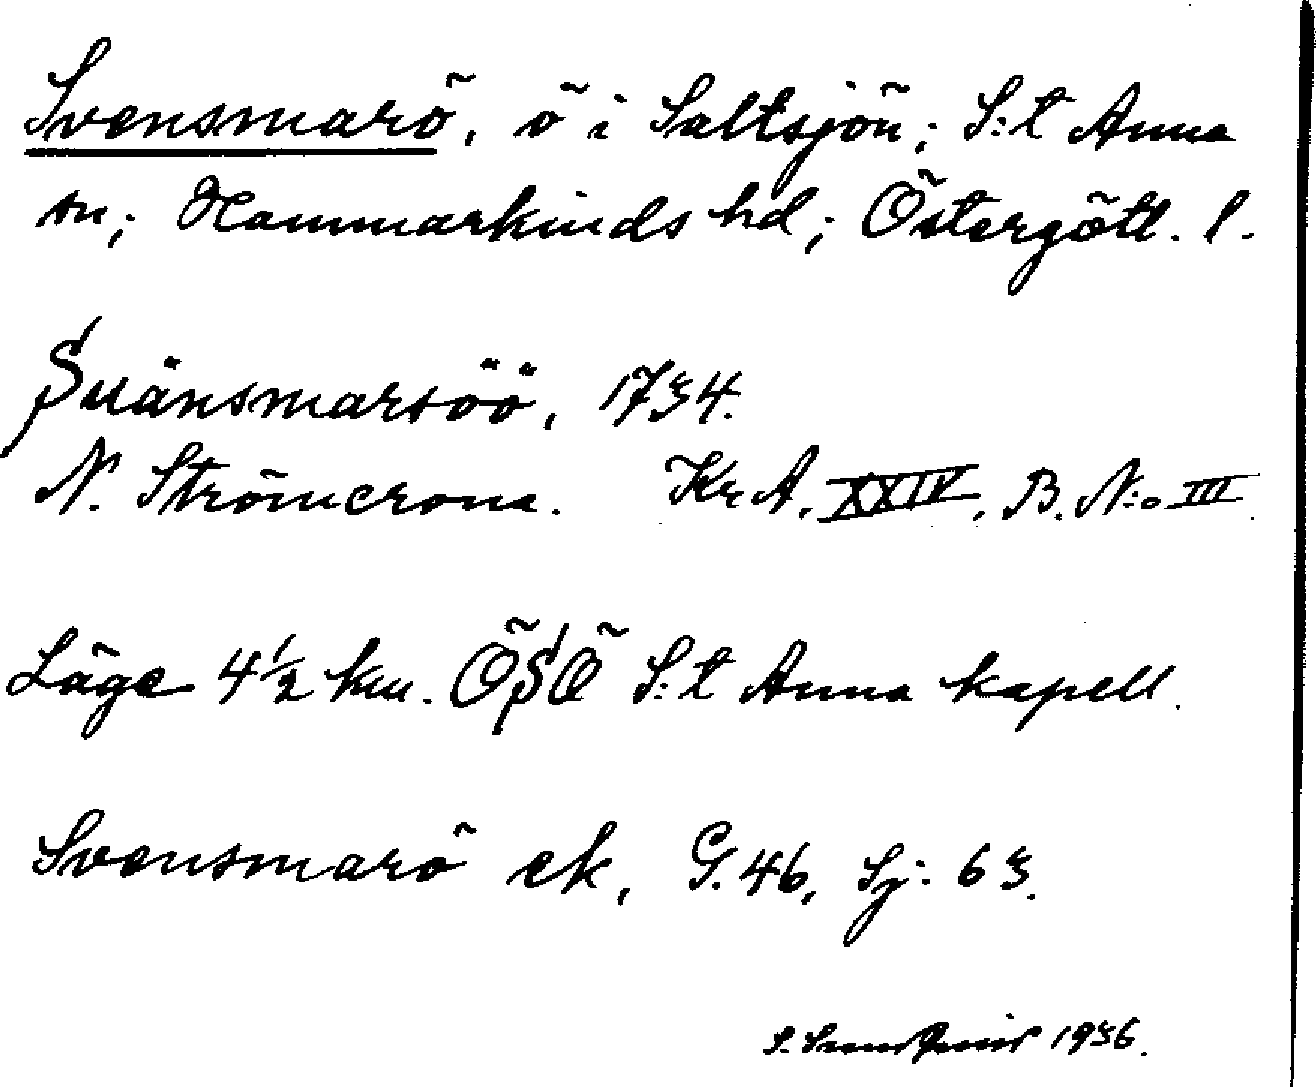 Svensmarö, ö i Saltsjön; S:t Anna
sn; Hammarkinds hd; Östergötl. l.
Suänsmarsöö, 1734.
N. Strömcrona. Kr A. XXIV. B. N:o III.
Läge 4½ km. ÖSÖ S:t Anna kapell.
Svensmarö ek, G. 46, Sj: 63.
S. 1936.